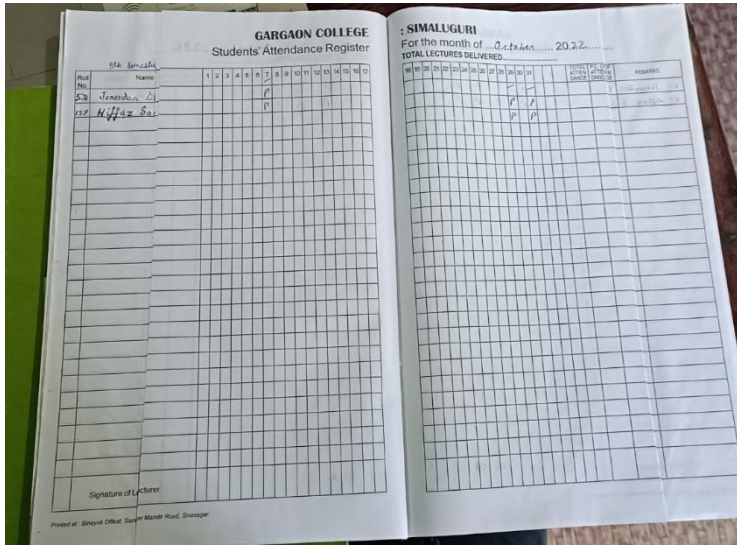 GARGAON COLLEGE : SIMALUGURI
Students' Attendance Register For the month of ...October...... 2022.........
TOTAL LECTURES DELIVERED
Roll No. Name 1 2 3 4 5 6 7 8 9 10 11 12 13 14 15 16 17 18 19 20 21 22 23 24 25 26 27 28 29 30 31 TOTAL ATTEN DANCE P.C. OF ATTEN DANCE REMARKS
P P P
Hiffaz P P P
Signature of Lecturer
Printed at : Binayak Offset, Mandir Road, Sivasagar